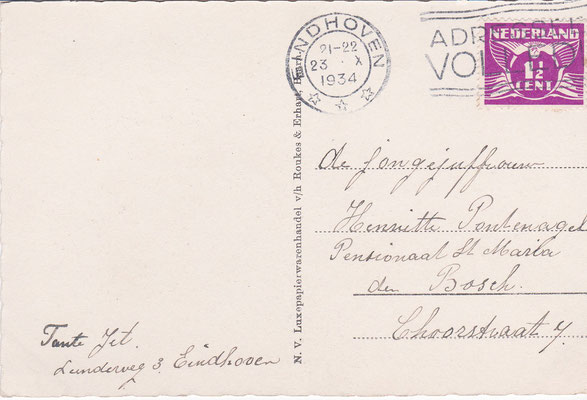 EINDHOVEN
21-22
23 X
1934
NEDERLAND
1½
CENT
N. V. Luxepapierwarenhandel v/h Roukes & Erhart, Baarn.
de jongejuffrouw
Henriette Pontenagel
Pensionaat St Maria
den Bosch.
Choorstraat 7.
Tante Jet.
Leenderweg 3. Eindhoven